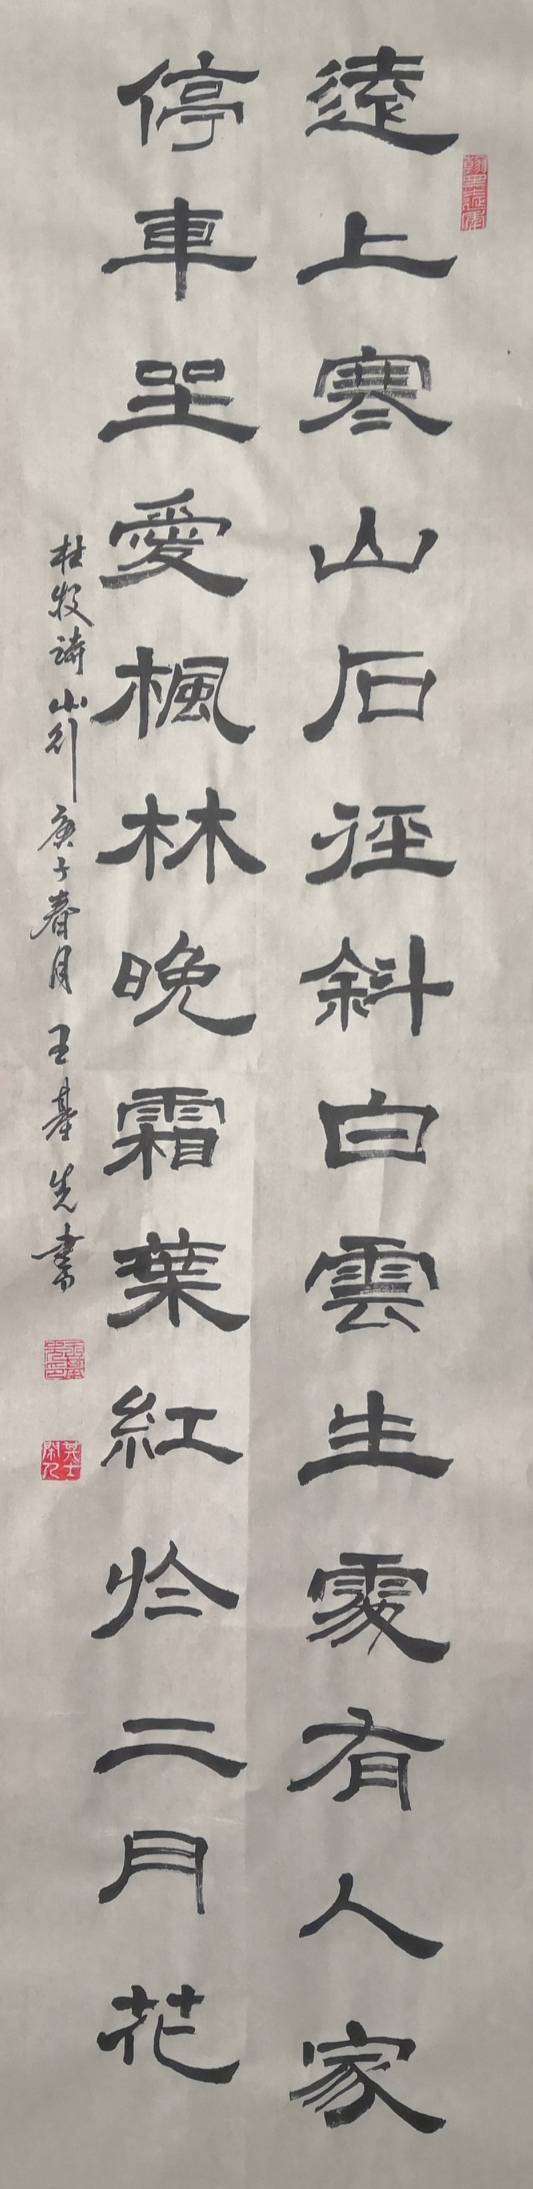 遠上寒山石徑斜白雲生處有人家
停車坐愛楓林晚霜葉紅於二月花
杜牧詩山行庚子春月王基先書